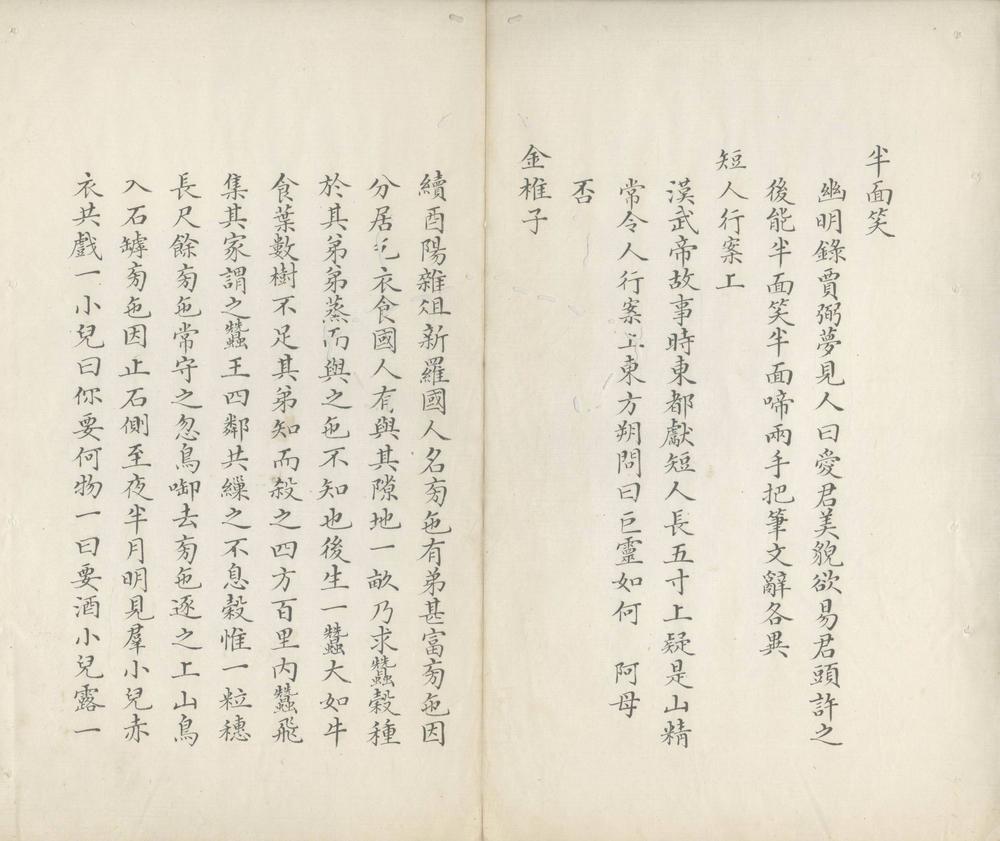 半面笑
幽明錄賈弼夢見人曰愛君美貌欲易君頭許之
後能半面笑半面啼兩手把筆文辭各異
短人行案上
漢武帝故事時東都獻短人長五寸上疑是山精
常令人行案上東方朔問曰巨靈如何　阿母
否
金椎子
續酉陽雜俎新羅國人名㫄㐌有弟甚富㫄㐌因
分居乞衣食國人有與其隙地一畝乃求蠶穀種
於其弟弟蒸而與之㐌不知也後生一蠶大如牛
食葉數樹不足其弟知而殺之四方百里内蠶飛
集其家謂之蠶王四鄰共繰之不息穀惟一粒穗
長尺餘㫄㐌常守之忽鳥啣去㫄㐌逐之上山鳥
入石罅㫄㐌因止石側至夜半月明見羣小兒赤
衣共戲一小兒曰你要何物一曰要酒小兒露一